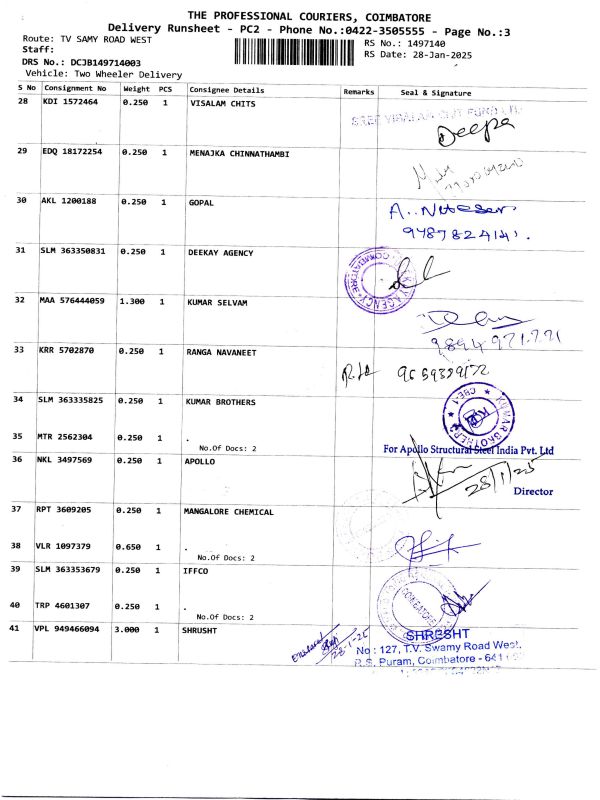 THE PROFESSIONAL COURIERS, COIMBATORE
Delivery Runsheet - PC2 - Phone No.:0422-3505555 - Page No.:3
Route: TV SAMY ROAD WEST
RS No.: 1497140
Staff:
RS Date: 28-Jan-2025
DRS No.: DCJB149714003
Vehicle: Two Wheeler Delivery
S No Consignment No Weight PCS Consignee Details Remarks Seal & Signature
28 KDI 1572464 0.250 1 VISALAM CHITS
Deepa
29 EDQ 18172254 0.250 1 MENAJKA CHINNATHAMBI
30 AKL 1200188 0.250 1 GOPAL
9787824141.
31 SLM 363350831 0.250 1 DEEKAY AGENCY
32 MAA 576444059 1.300 1 KUMAR SELVAM
9894 971771
33 KRR 5702870 0.250 1 RANGA NAVANEET
34 SLM 363335825 0.250 1 KUMAR BROTHERS
KUMAR BROTHERS CBE-1
35 MTR 2562304 0.250 1 .
No.Of Docs: 2
For Apollo Structural Steel India Pvt. Ltd
36 NKL 3497569 0.250 1 APOLLO
28/1/25
Director
37 RPT 3609205 0.250 1 MANGALORE CHEMICAL
38 VLR 1097379 0.650 1 .
No.Of Docs: 2
39 SLM 363353679 0.250 1 IFFCO
COIMBATORE
40 TRP 4601307 0.250 1 .
No.Of Docs: 2
41 VPL 949466094 3.000 1 SHRUSHT
28-1-25
SHRESHT
No : 127, T.V. Swamy Road West,
R.S. Puram, Coimbatore - 641